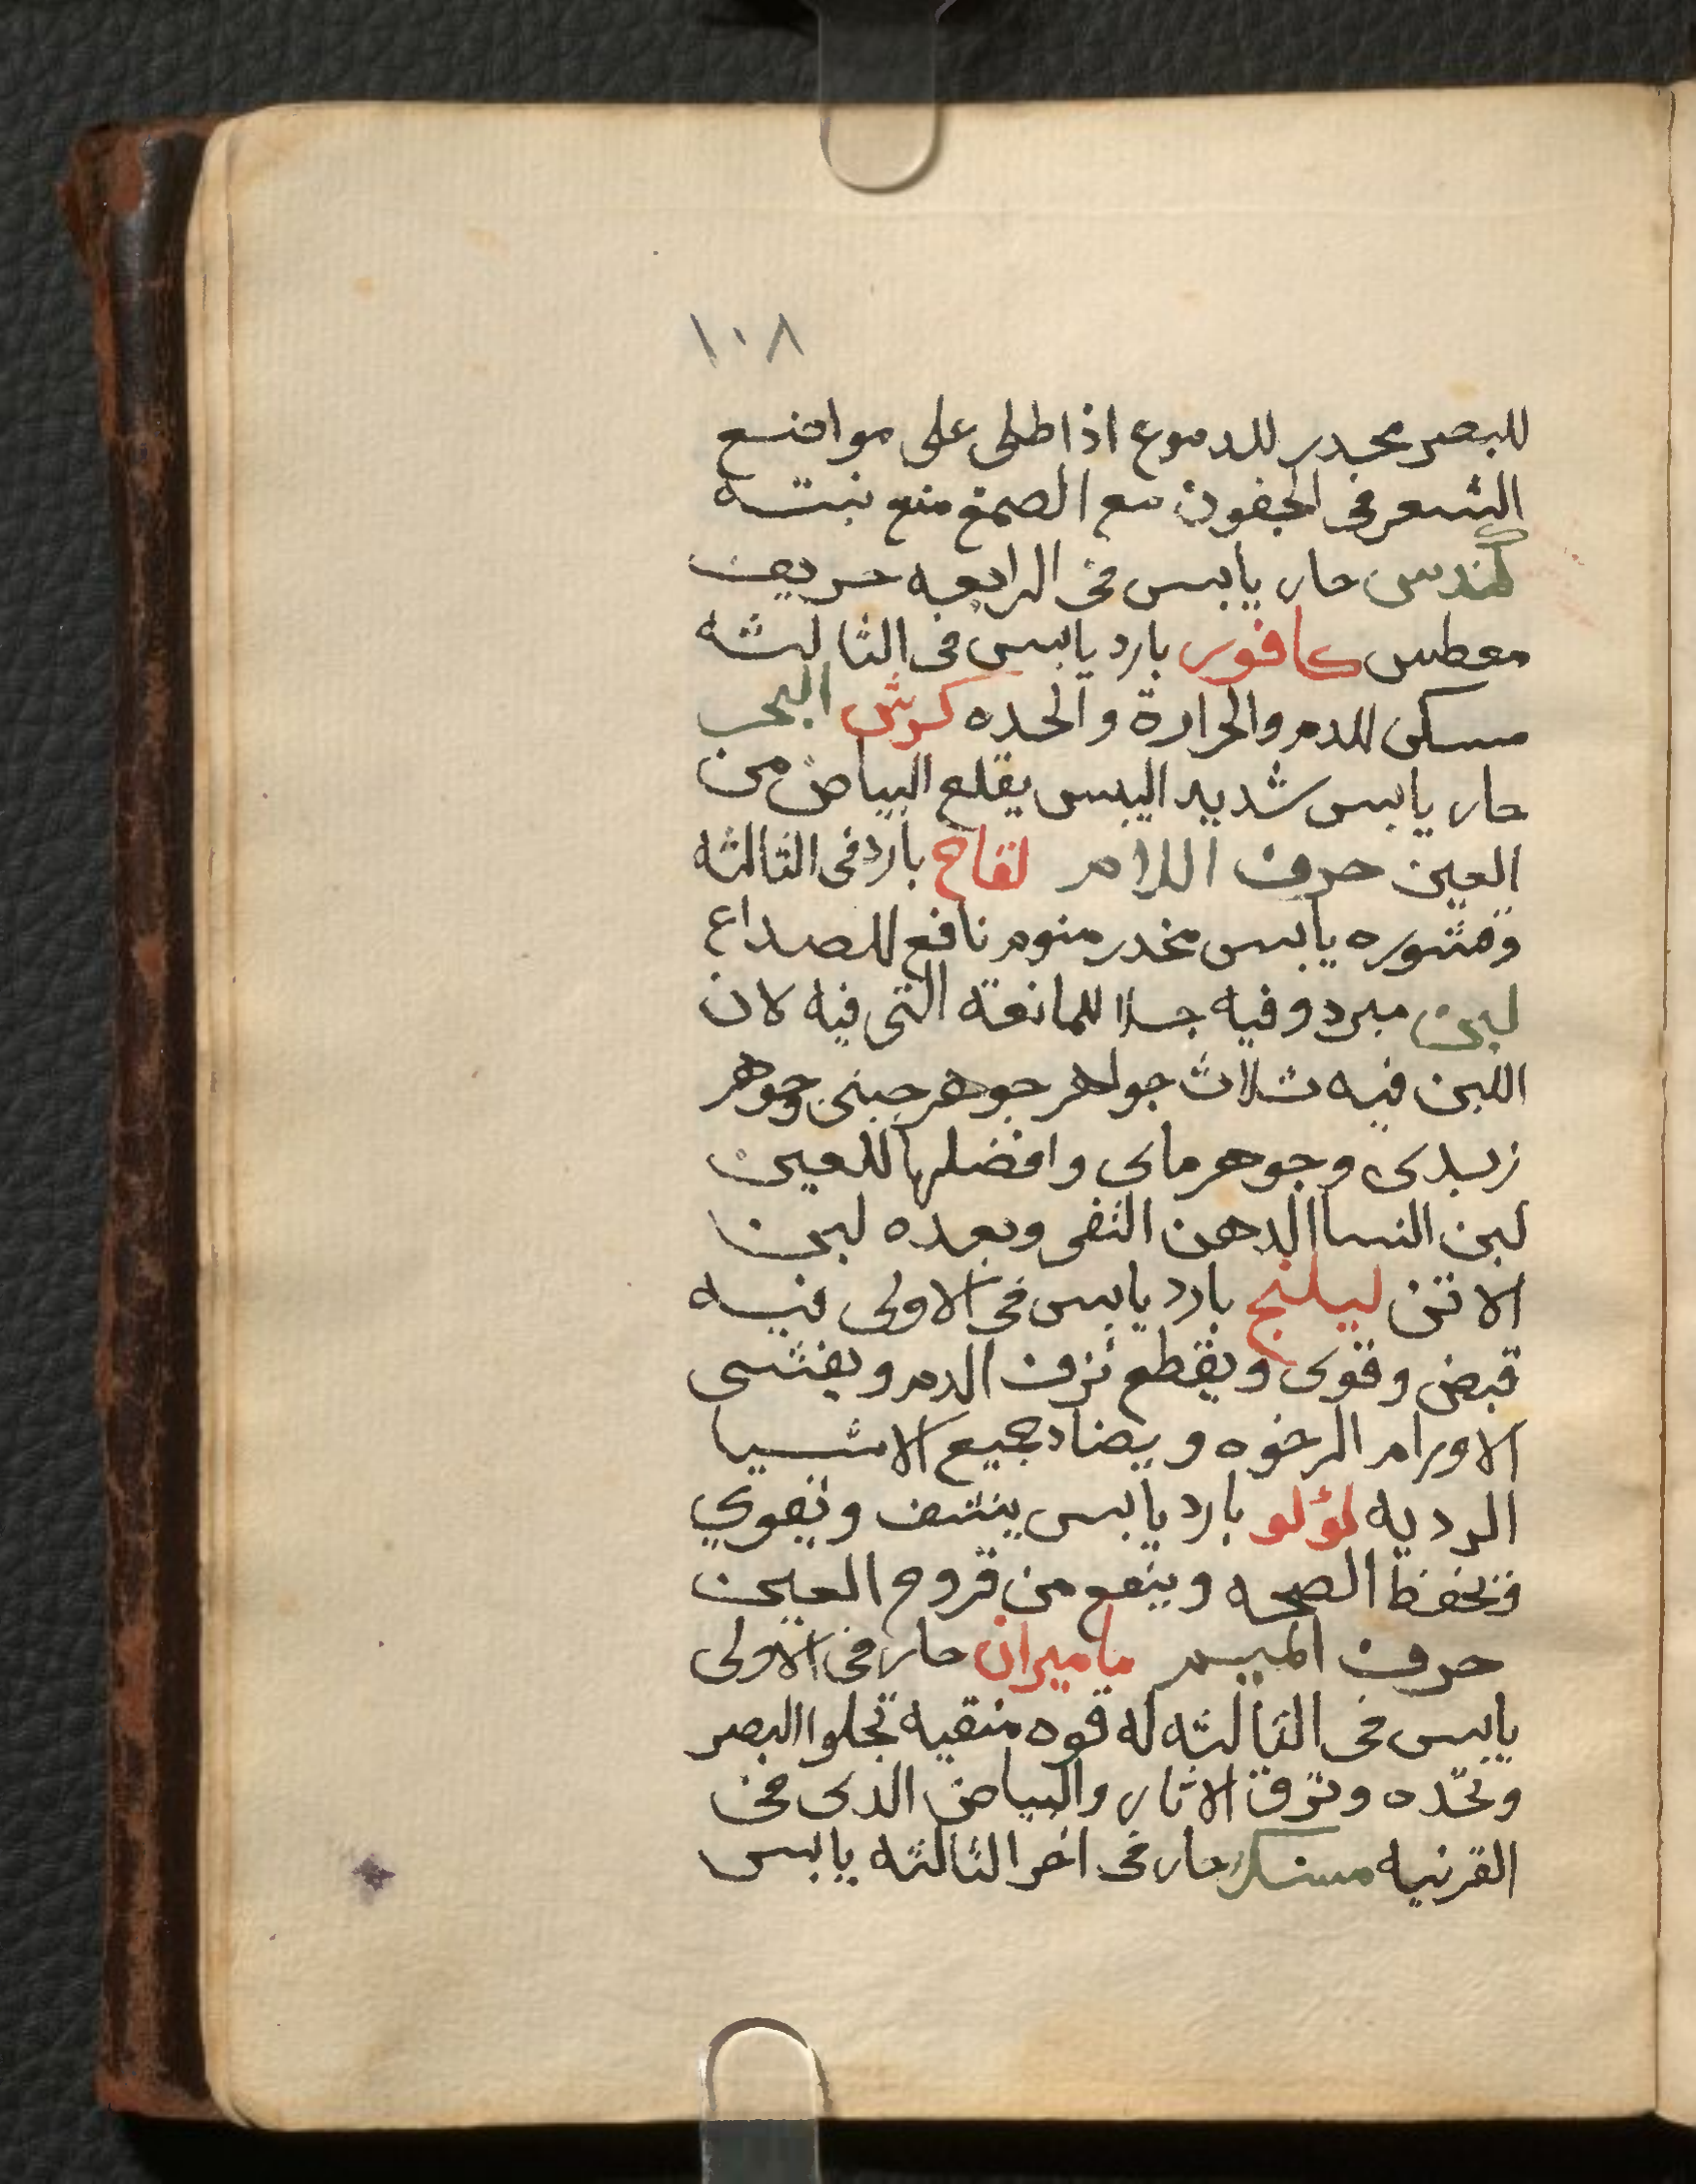 ١٠٨
للبصر محدر للدموع اذا طلى على مواضع
الشعر فى الجفون مع الصمغ منع نبته
كندس حار يابس فى الرابعه حريف
معطس كافور بارد يابس فى الثالثه
مسكن للدم والحرارة والحده كرش البحر
حار يابس شديد اليبس يقلع البياض من
العين حرف اللام لفاح بارد فى الثالثه
وقشوره يابس مخدر منوم نافع للصداع
لبن مبرد وفيه جلا للمانعة التى فيه لان
اللبن فيه ثلاث جواهر جوهر جبنى وجوهر
زبدى وجوهر ماى وافضلها للعين
لبن النسا الدهن النقى وبعده لبن
الاتن ليلنج بارد يابس فى الاولى فيه
قبض وقوى ويقطع نزف الدم ويفشى
الاورام الرخوه ويضاد جميع الاشيا
الرديه لؤلو بارد يابس ينشف ويقوي
فتحفظ الصحه وينفع من قروح العين
حرف الميم ماميران حار فى الاولى
يابس فى الثالثه له قوه منقيه تجلوا البصر
وتحده وترق الاثار والبياض الدى فى
القرنيه مسكر حار فى اخر الثالثه يابس